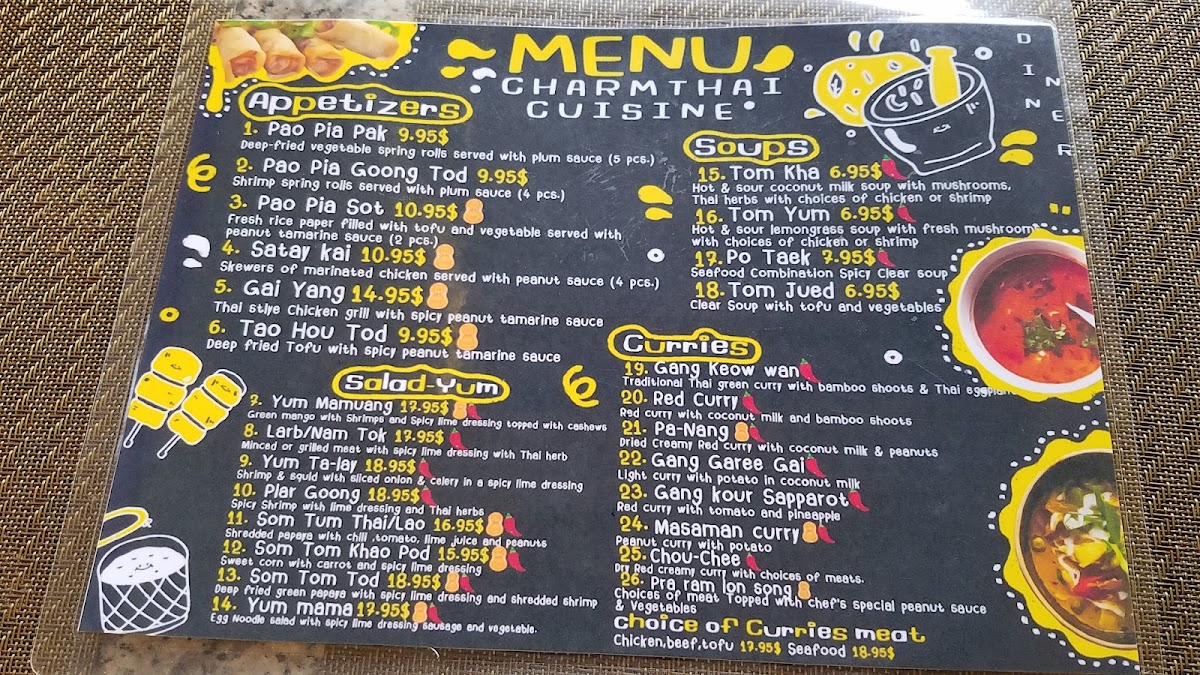 MENU
CHARMTHAI
CUISINE
DINNER
Appetizers
1. Pao Pia Pak 9.95$
Deep-fried vegetable spring rolls served with plum sauce (5 pcs.)
2. Pao Pia Goong Tod 9.95$
Shrimp spring rolls served with plum sauce (4 pcs.)
3. Pao Pia Sot 10.95$
Fresh rice paper filled with tofu and vegetable served with
peanut tamarine sauce (2 pcs.)
4. Satay kai 10.95$
Skewers of marinated chicken served with peanut sauce (4 pcs.)
5. Gai Yang 14.95$
Thai stlye Chicken grill with spicy peanut tamarine sauce
6. Tao Hou Tod 9.95$
Deep fried Tofu with spicy peanut tamarine sauce
Salad-Yum
7. Yum Mamuang 17.95$
Green mango with Shrimps and Spicy lime dressing topped with cashews
8. Larb/Nam Tok 17.95$
Minced or grilled meat with spicy lime dressing with Thai herb
9. Yum Ta-lay 18.95$
Shrimp & squid with sliced onion & celery in a spicy lime dressing
10. Plar Goong 18.95$
Spicy Shrimp with lime dressing and Thai herbs
11. Som Tum Thai/Lao 16.95$
Shredded papaya with chili ,tomato, lime juice and peanuts
12. Som Tom Khao Pod 15.95$
Sweet corn with carrot and spicy lime dressing
13. Som Tom Tod 18.95$
Deep fried green papaya with spicy lime dressing and shredded shrimp
14. Yum mama 17.95$
Egg Noodle salad with spicy lime dressing sausage and vegetable.
Soups
15. Tom Kha 6.95$
Hot & sour coconut milk soup with mushrooms,
Thai herbs with choices of chicken or shrimp
16. Tom Yum 6.95$
Hot & sour lemongrass soup with fresh mushroom
with choices of chicken or shrimp
17. Po Taek 7.95$
Seafood Combination Spicy Clear soup
18. Tom Jued 6.95$
Clear Soup with tofu and vegetables
Curries
19. Gang Keow wan
Traditional Thai green curry with bamboo shoots & Thai eggplant
20. Red Curry
Red curry with coconut milk and bamboo shoots
21. Pa-Nang
Dried Creamy Red curry with coconut milk & peanuts
22. Gang Garee Gai
Light curry with potato in coconut milk
23. Gang kour Sapparot
Red curry with tomato and pineapple
24. Masaman curry
Peanut curry with potato
25. Chou-Chee
Dry Red creamy curry with choices of meats.
26. Pra ram lon song
Choices of meat Topped with chef's special peanut sauce
& Vegetables
choice of Curries meat
Chicken,beef,tofu 17.95$ Seafood 18.95$